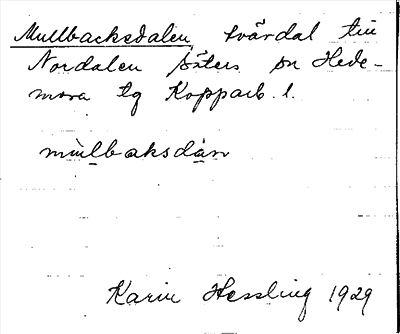 Mullbacksdalen, tvärdal till
Nordalen Säters sn Hede-
mora tg Kopparb. l.
mùlbaksdàn
Karin Hessling 1929